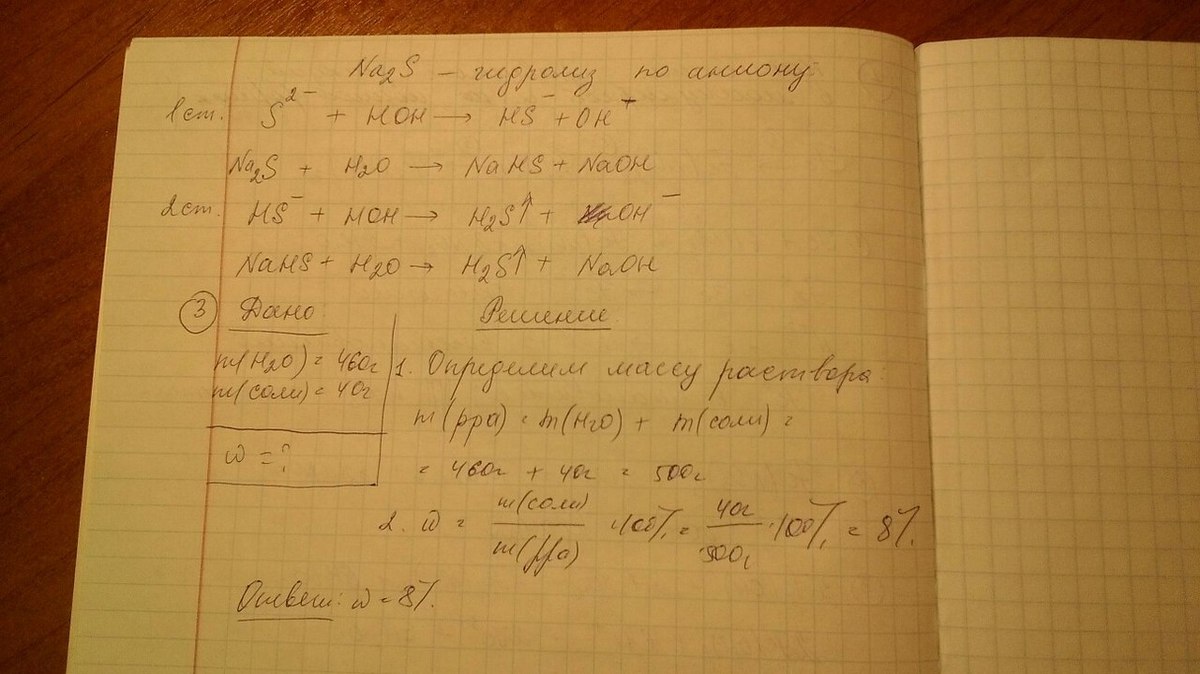 Na₂S – гидролиз по аниону
1 ст. S²⁻ + HOH → HS⁻ + OH⁺
Na₂S + H₂O → NaHS + NaOH
2 ст. HS⁻ + HOH → H₂S↑ + OH⁻
NaHS + H₂O → H₂S↑ + NaOH
③ Дано Решение
m(H₂O) = 460г
m(соли) = 40г
ω = ?
1. Определим массу раствора:
m(рра) = m(H₂O) + m(соли) =
= 460г + 40г = 500г
2. ω = m(соли) / m(рра) · 100% = 40г / 500г · 100% = 8%
Ответ: ω = 8%.